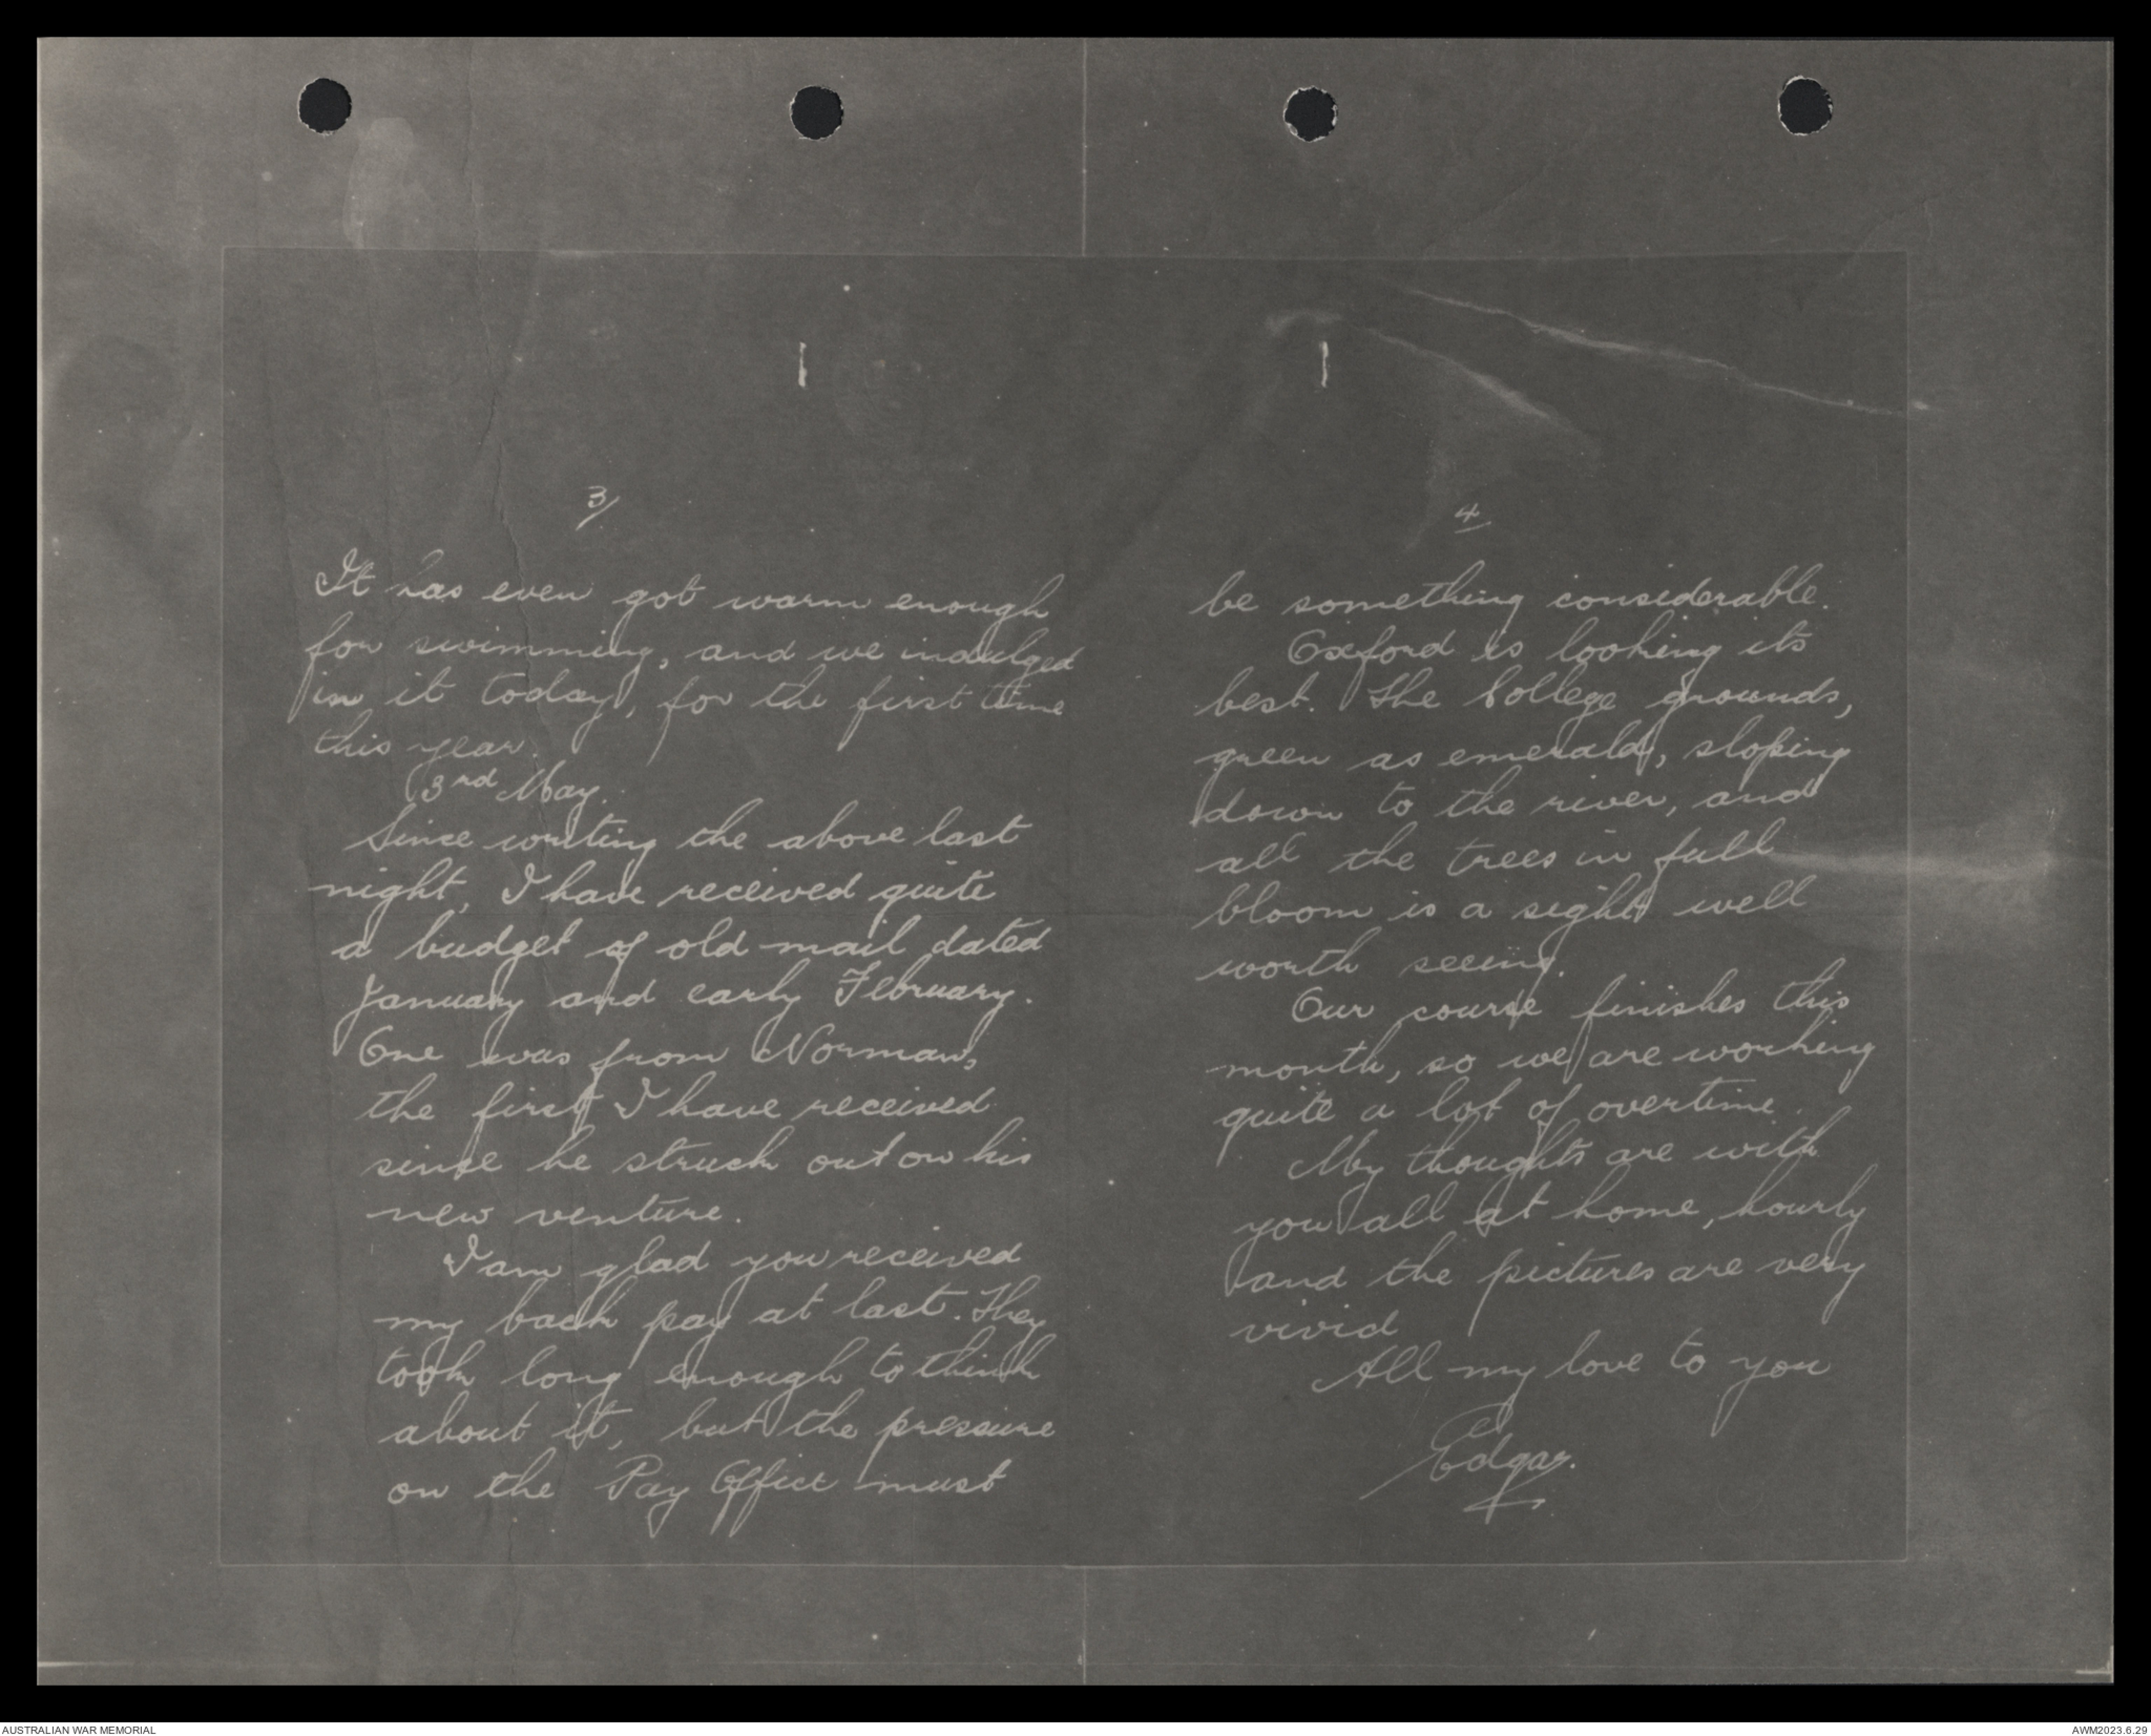 3/
It has even got warm enough
for swimming, and we indulged
in it today, for the first time
this year.
3rd May.
Since writing the above last
night, I have received quite
a budget of old mail dated
January and early February.
One was from Norman,
the first I have received
since he struck out on his
new venture.
I am glad you received
my back pay at last. They
took long enough to think
about it, but the pressure
on the Pay Office must
4
be something considerable.
Oxford is looking its
best. The College grounds,
green as emerald, sloping
down to the river, and
all the trees in full
bloom is a sight well
worth seeing.
Our course finishes this
month, so we are working
quite a lot of overtime.
My thoughts are with
you all at home, hourly
and the pictures are very
vivid
All my love to you
Edgar.
AUSTRALIAN WAR MEMORIAL
AWM2023.6.29